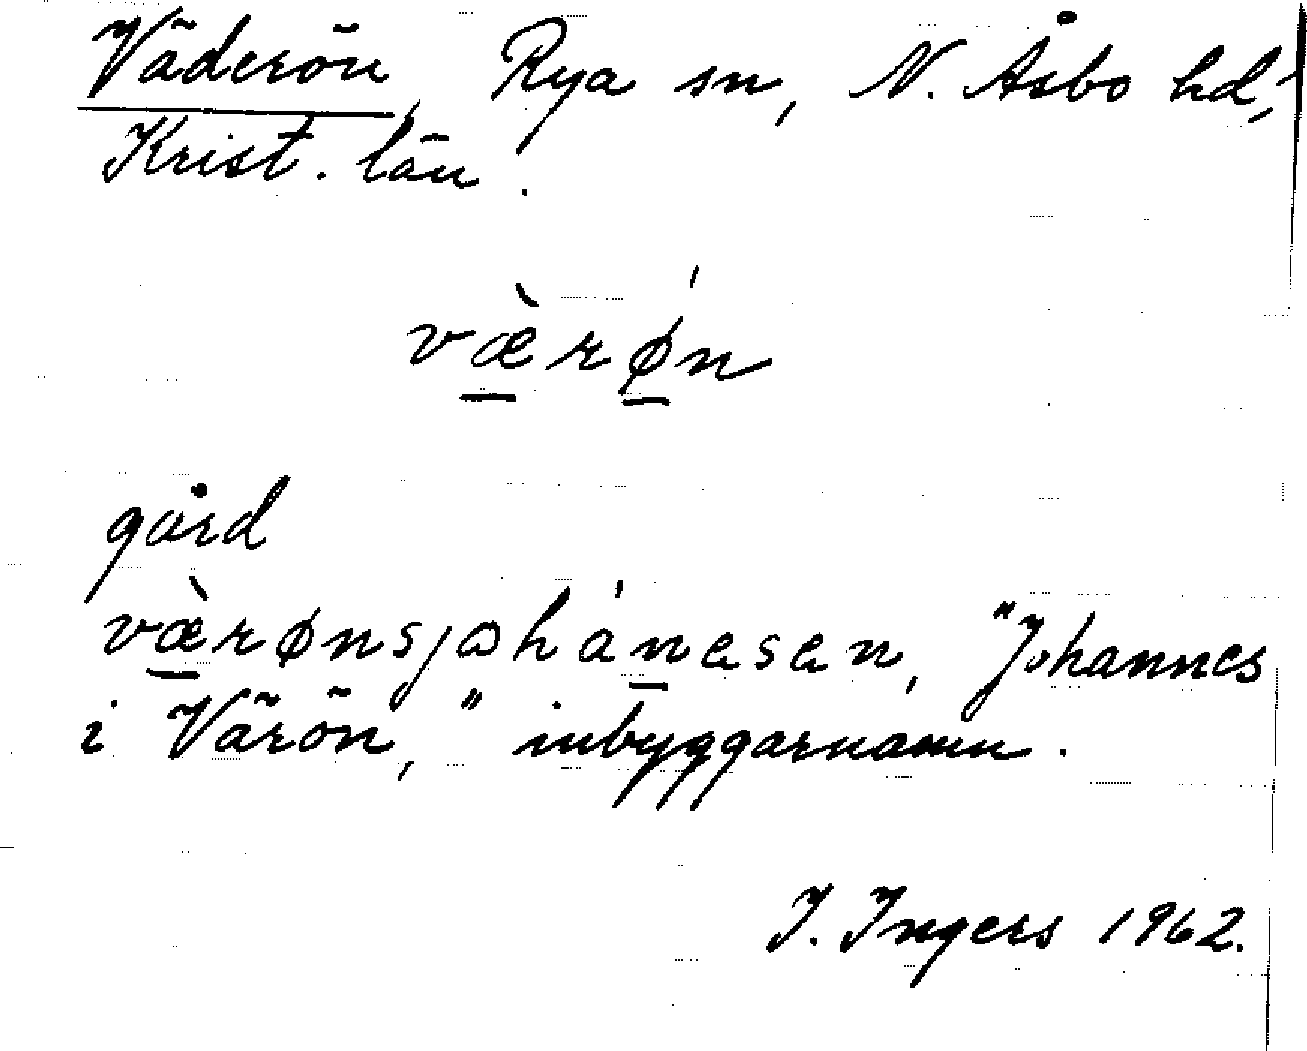 Väderön, Rya sn, N. Åsbo hd,
Krist. län.
væ̀rǿn
gård
væ̀rønsjɷhánəsən, "Johannes
i Värön," inbyggarnamn.
I. Ingers 1962.